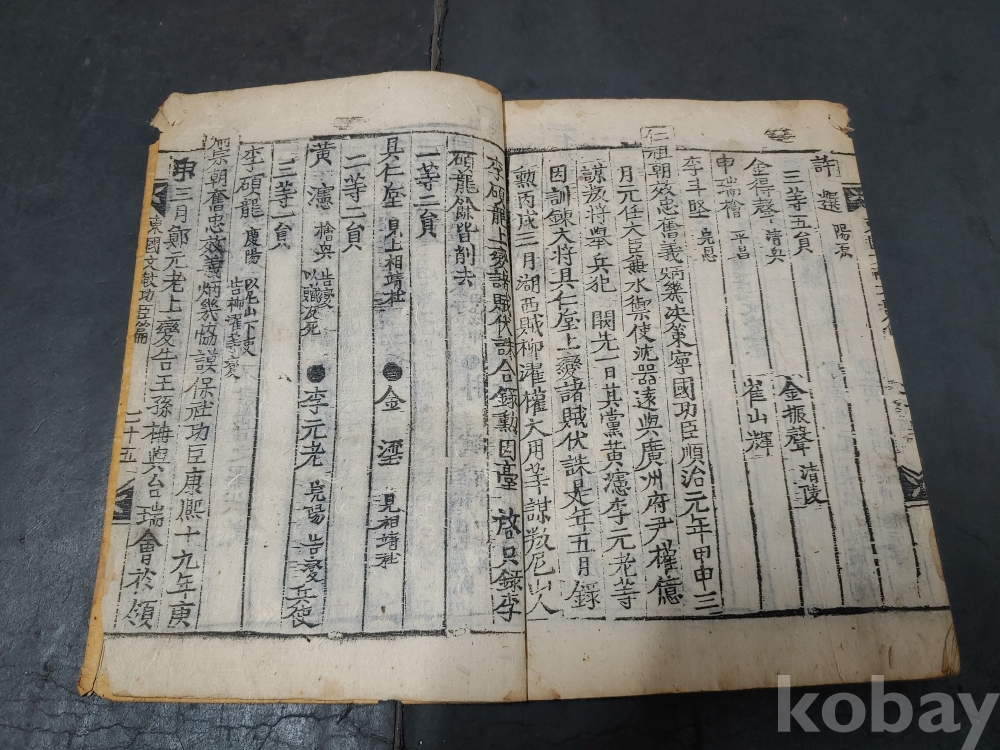 許選 陽川
三等五員
金得聲 清風 金振聲 清陵
申瑞檜 平昌 崔山輝
李斗堅
仁祖朝效忠奮義炳幾決策寧國功臣順治元年甲申三
月元任大臣兼水禦使沈器遠與廣州府尹權億
諒叛將舉兵犯 闕先一日其黨黃瀗李元老等
因訓鍊大將具仁垕上變諸賊伏誅是年五月錄
勳丙戌三月湖西賊柳濯權大用等謀叛尼山人
李碩龍上變諸賊伏誅合錄勳因臺 啓只錄李
碩龍餘皆削去
一等二員
具仁垕 見上相靖社 金瑬 見相靖社
二等二員
黃瀗 檜吳 告變 以賊反死 李元老 告變兵使
三等一員
李碩龍 慶陽 以尼山下吏 告柳濯等變
肅宗朝奮忠效義炳幾協謨保社功臣康熙十九年庚
申三月鄭元老上變告王孫柟與台瑞會於領
東國文獻功臣篇
二十五
kobay